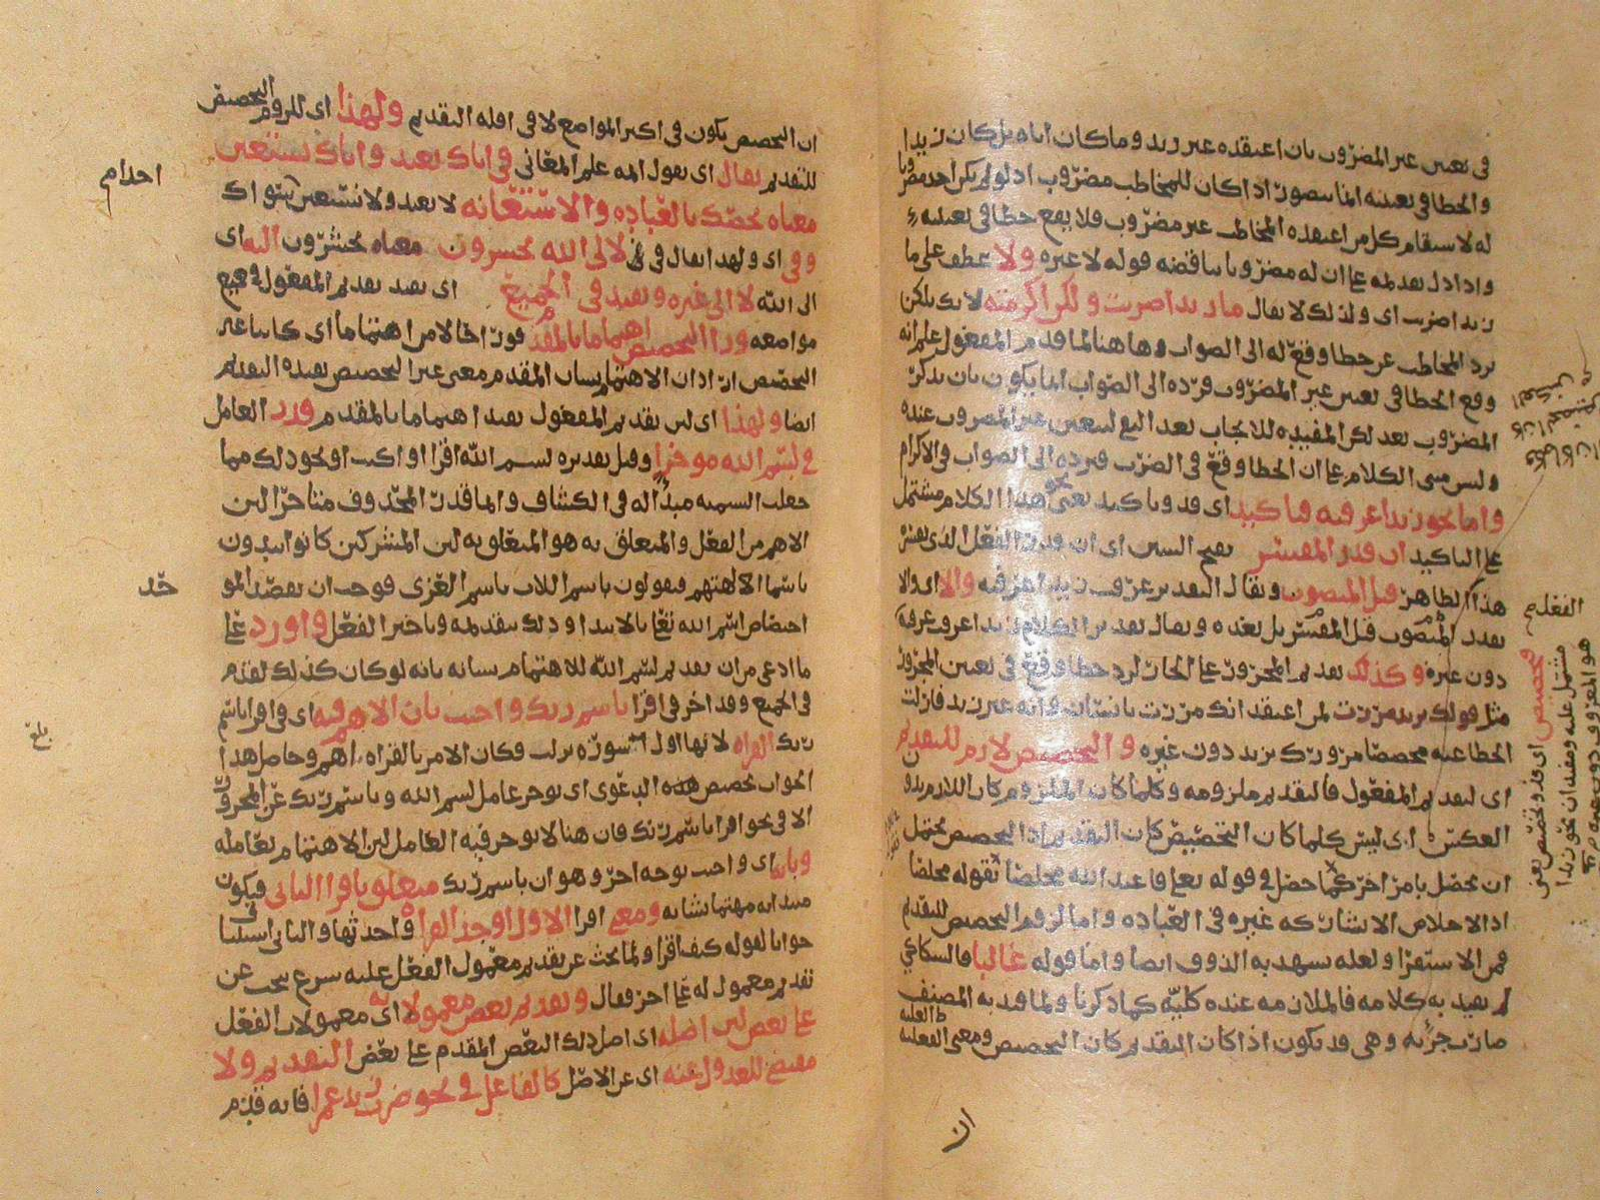 في تعيين غير المضروب بان اعتقده غير زيد وما كان اياه بل كان زيدا
والخطا في تعينه انما يتصور اذا كان للمخاطب مضروب اذ لو لم يكن احد مضروبا
له لاستقام كل من اعتقده المخاطب غير مضروب فلا يقع خطا في تعينه
واذا دل تقديمه على ان له مضروبا يناقضه قوله لا غيره ولا عطف على ما
زيدا ضربت اي ولذلك لا يقال ما زيدا ضربت ولكن اكرمته لانك بلكن
ترد المخاطب عن خطا وقع له الى الصواب وها هنا لما قدم المفعول علم انه
وقع الخطا في تعيين غير المضروب فرده الى الصواب انما يكون بان يذكر
المضروب بعد لكن المفيده للايجاب بعد النفي ليتعين غير المضروب عنده
وليس مبنى الكلام على ان الخطا وقع في الضرب فيرده الى الصواب في الاكرام
واما نحو زيدا عرفته فتاكيد اي قد وتاكيد يعني نحو هذا الكلام مشتمل
على التاكيد ان قدر المفسر بفتح السين اي ان قدر الفعل الذي يفسره
هذا الظاهر قبل المنصوب ويقال التقدير عرفت زيدا عرفته والا اي والا
يقدر المنصوب قبل المفسر بل بعده ويقال تقدير الكلام زيدا عرفت عرفته
دون غيره وكذلك تقديم المجرور على الجار لرد خطا وقع في تعيين المجرور
مثل قولك بزيد مررت لمن اعتقد انك مررت بانسان وانه غير زيد فازلت
الخطا عنه مخصصا مرورك بزيد دون غيره والتخصيص لازم للتقديم
اي لتقديم المفعول فالتقديم ملزومه وكلما كان الملزوم كان اللازم بدون
العكس اي ليس كلما كان التخصيص كان التقديم اذ التخصيص يحتمل
ان يحصل بامر اخر كما حصل في قوله تعالى فاعبد الله مخلصا بقوله مخلصا
اذ الاخلاص الا يشاركه غيره في العباده واما لزوم التخصيص للتقديم
فمن الاستقرا ولعله يشهد به الذوق ايضا واما قوله غالبا فالسكاكي
لم يقيد به كلامه فالملازمه عنده كليه كما ذكرنا ولما قيد به المصنف
صارت جزئيه وهي قد يكون اذا كان التقديم كان التخصيص ومعنى الغلبه
ان
الفعل
فتخصيص اي قد وتخصيص يعني
مشتمل عليه ومفيد ان نحو زيدا
ان التخصيص يكون في اكثر المواضع لا في اقله التقديم ولهذا اي للزوم التخصيص
للتقديم يقال اي يقول ائمه علم المعاني في اياك نعبد واياك نستعين
معناه نخصك بالعباده والاستعانه لا نعبد ولا نستعين بسواك
وفي اي ولهذا يقال في لالى الله تحشرون معناه تحشرون اليه اي
الى الله لا الى غيره ويفيد في الجميع اي يفيد تقديم المفعول في جميع
مواضعه ورا التخصيص اهتماما بالمقدم فورا خالا من اهتماما اي كائنا غير
التخصيص اذ اذ ان الاهتمام بشان المقدم معنى غير التخصيص يفيده التقديم
ايضا ولهذا اي لان تقديم المفعول يفيد اهتماما بالمقدم قدر العامل
في بسم الله موخرا وقيل تقديره بسم الله اقرا او اكتب او نحو ذلك مما
جعلت التسميه مبدا له في الكشاف وانما قدر المحذوف متاخرا لان
الاهم من الفعل والمتعلق به هو المتعلق به لان المشركين كانوا يبدون
باسما الالهتهم فيقولون باسم اللات باسم العزى فوجب ان يقصد الموحد
اختصاص اسم الله تعالى بالابتدا وذلك بتقديمه وتاخير الفعل واورد على
ما ادعى من ان تقديم بسم الله للاهتمام بشانه بانه لو كان كذلك لقدم
في الجميع وقد اخر في اقرا باسم ربك واجيب بان الاهم فيه اي في اقرا باسم
ربك القراه لانها اول سوره نزلت فكان الامر بالقراه اهم وحاصل هذا
الجواب تخصيص هذه الدعوى اي يوخر عامل بسم الله وباسم ربك عن المجرور
الا في نحو اقرا باسم ربك فان هنا لا يوخر فيه العامل لان الاهتمام بعامله
وبان اي واجيب بوجه اخر وهو ان باسم ربك متعلق باقرا الثاني فيكون
مبتدابه مهتما بشانه ومعنى اقرا الاول اوجد القراه واحدثها والثاني استينافا
جوابا لقوله كيف اقرا ولما بحث عن تقديم معمول الفعل عليه شرع يبحث عن
تقديم معمول له على اخر فقال وتقديم بعض معمولاته اي معمولات الفعل
على بعض لان اصله اي اصل ذلك البعض المقدم على بعض التقديم ولا
مقتضى للعدول عنه اي عن الاصل كالفاعل في نحو ضرب زيد عمرا فانه قدم
بلغ